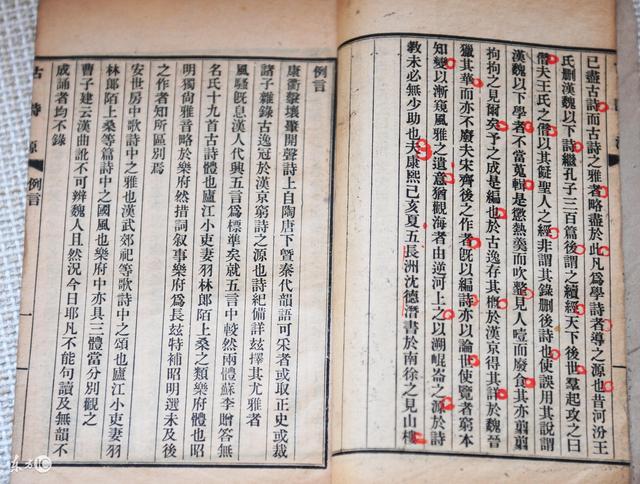 已盡古詩而古詩之雅者略盡於此凡為學詩者導之源也昔河汾王
氏刪漢魏以下詩繼孔子三百篇後謂之續經天下後世羣起攻之曰
僭夫王氏之僭以其儗聖人之經非謂其錄刪後詩也使誤用其說謂
漢魏以下學者不當蒐輯是懲熱羹而吹虀見人噎而廢食其亦翦翦
拘拘之見爾矣予之成是編也於古逸存其概於漢京得其詳於魏晉
獵其華而亦不廢夫宋齊後之作者既以編詩亦以論世使覽者窮本
知變以漸窺風雅之遺意猶觀海者由逆河上之以溯崐崙之源於詩
教未必無少助也夫康熙己亥夏五長洲沈德潛書於南徐之見山樓
例言
康衢擊壤肇開聲詩上自陶唐下暨秦代韻語可采者或取正史或裁
諸子雜錄古逸冠於漢京窮詩之源也詩紀備詳茲擇其尤雅者
風騷既息漢人代興五言為標準矣就五言中較然兩體蘇李贈答無
名氏十九首古詩體也廬江小吏妻羽林郎陌上桑之類樂府體也昭
明獨尚雅音略於樂府然措詞敘事樂府為長茲特補昭明選未及後
之作者知所區別焉
安世房中歌詩中之雅也漢武郊祀等歌詩中之頌也廬江小吏妻羽
林郎陌上桑等篇詩中之國風也樂府中亦具三體當分別觀之
曹子建云漢曲訛不可辨魏人且然況今日耶凡不能句讀及無韻不
成誦者均不錄
古詩源
例言
一